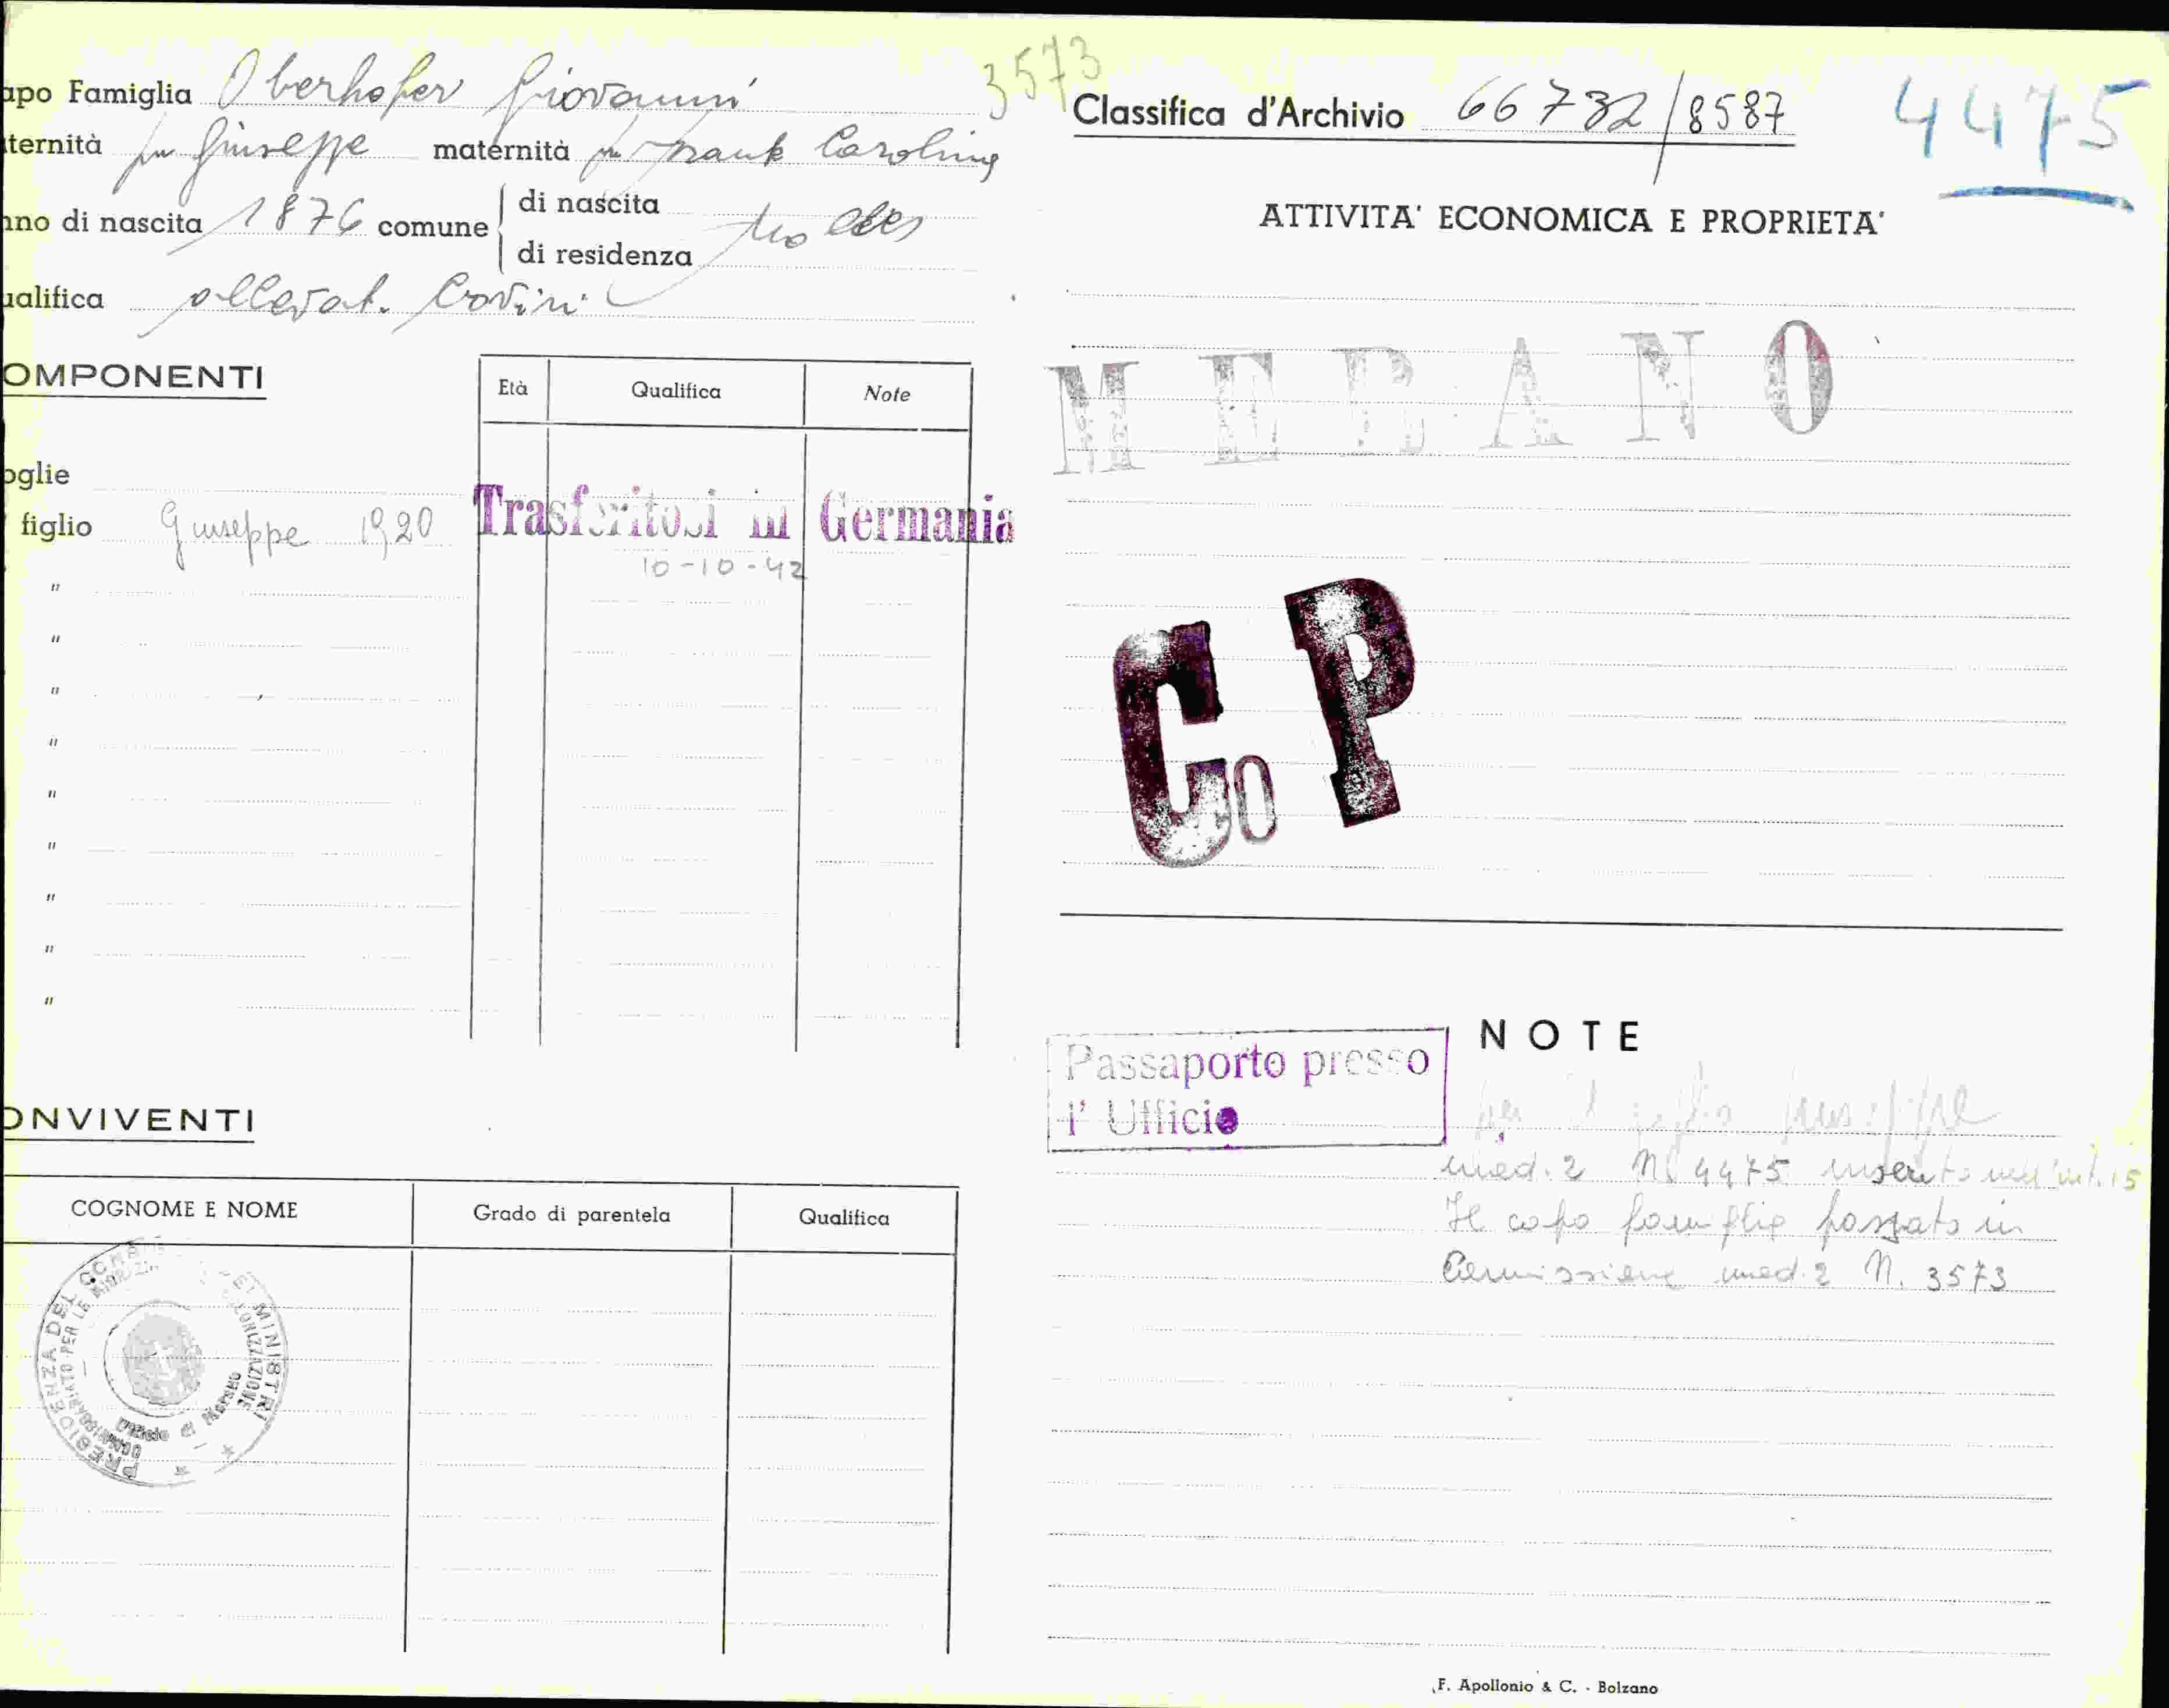 apo Famiglia Oberhofer Giovanni
3573
ternità fu Giuseppe maternità fu Frank Carolina
nno di nascita 1876 comune di nascita
di residenza
ualifica allevat. bovini
OMPONENTI
Età Qualifica Note
oglie
figlio Giuseppe 1920 Trasferitosi in Germania
10-10-42
"
"
"
"
"
"
"
"
"
ONVIVENTI
COGNOME E NOME Grado di parentela Qualifica
PRESIDENZA DEL MINISTRI
Classifica d'Archivio 66732/8587
4475
ATTIVITA' ECONOMICA E PROPRIETA'
MERANO
Co P
NOTE
Passaporto presso
l' Ufficio
per il figlio Giuseppe
mod. 2 N. 4475 inserito nell'int. 15
Il capo famiglia passato in
Commissione mod. 2 N. 3573
F. Apollonio & C. - Bolzano